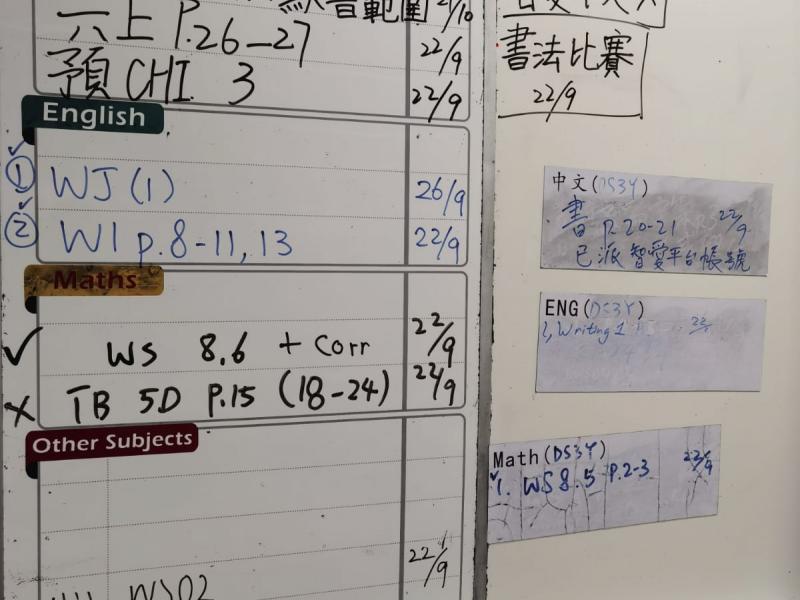 默書範圍 21/10
六上 P.26-27 22/9
預 CHI 3 22/9
English
① WJ (1) 26/9
② W1 p.8-11, 13 22/9
Maths
✓ WS 8.6 + Corr 22/9
✗ TB 5D P.15 (18-24) 22/9
Other Subjects
22/9
WS02
書法比賽
22/9
中文(DS3Y)
書 P.20-21 22/9
已派智愛平台帳號
ENG(DS3Y)
1, Writing 1 22/
Math(DS3Y)
1. WS 8.5 P.2-3 22/9